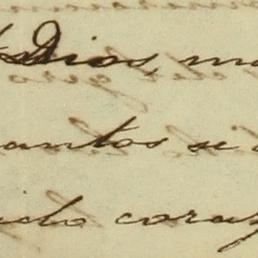 Dios, m
antos se
ido coraz